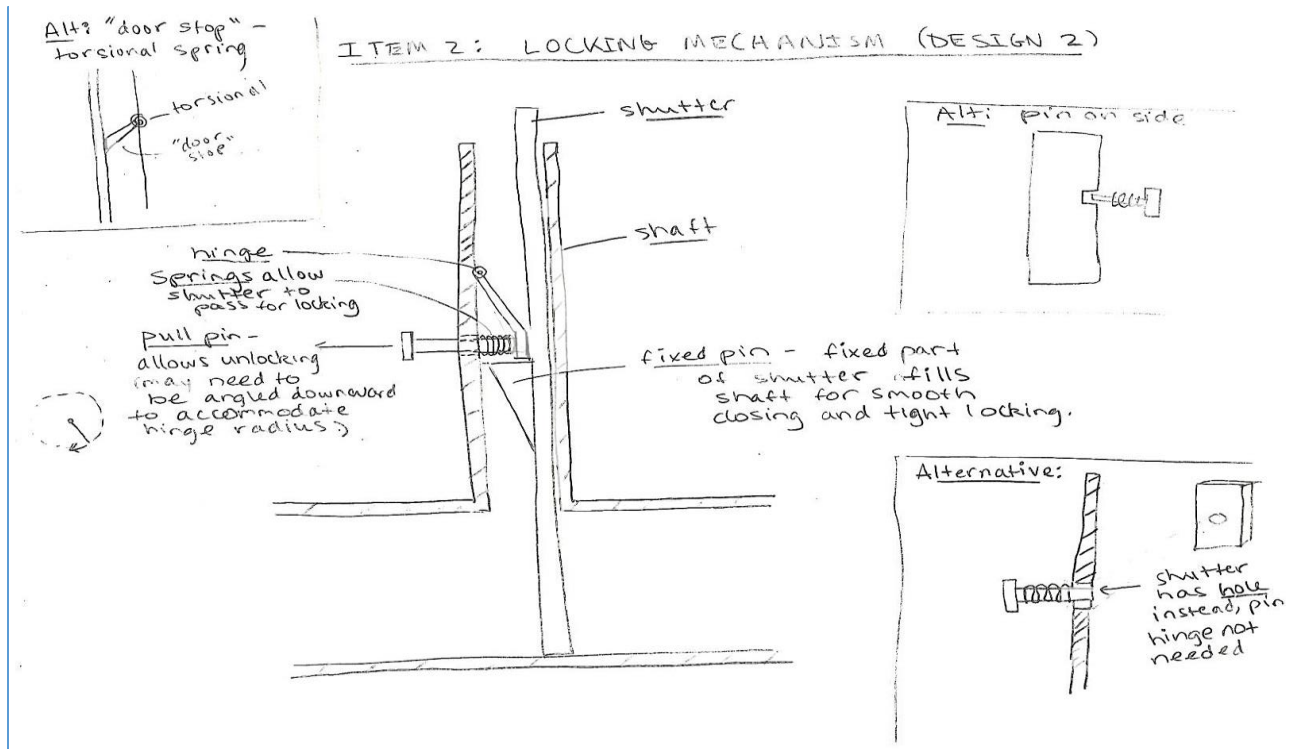 Alt: "door stop" -
torsional spring
torsional
"door
stop"
ITEM 2: LOCKING MECHANISM (DESIGN 2)
shutter
shaft
hinge
springs allow
shutter to
pass for locking
pull pin -
allows unlocking
(may need to
be angled downward
to accommodate
hinge radius:)
fixed pin - fixed part
of shutter fills
shaft for smooth
closing and tight locking.
Alt: pin on side
Alternative:
shutter
has hole
instead, pin
hinge not
needed